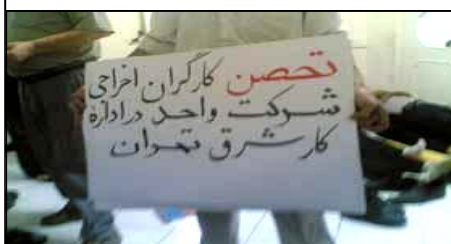 تحصن کارگران اخراجی
شرکت واحد در اداره
کار شرق تهران